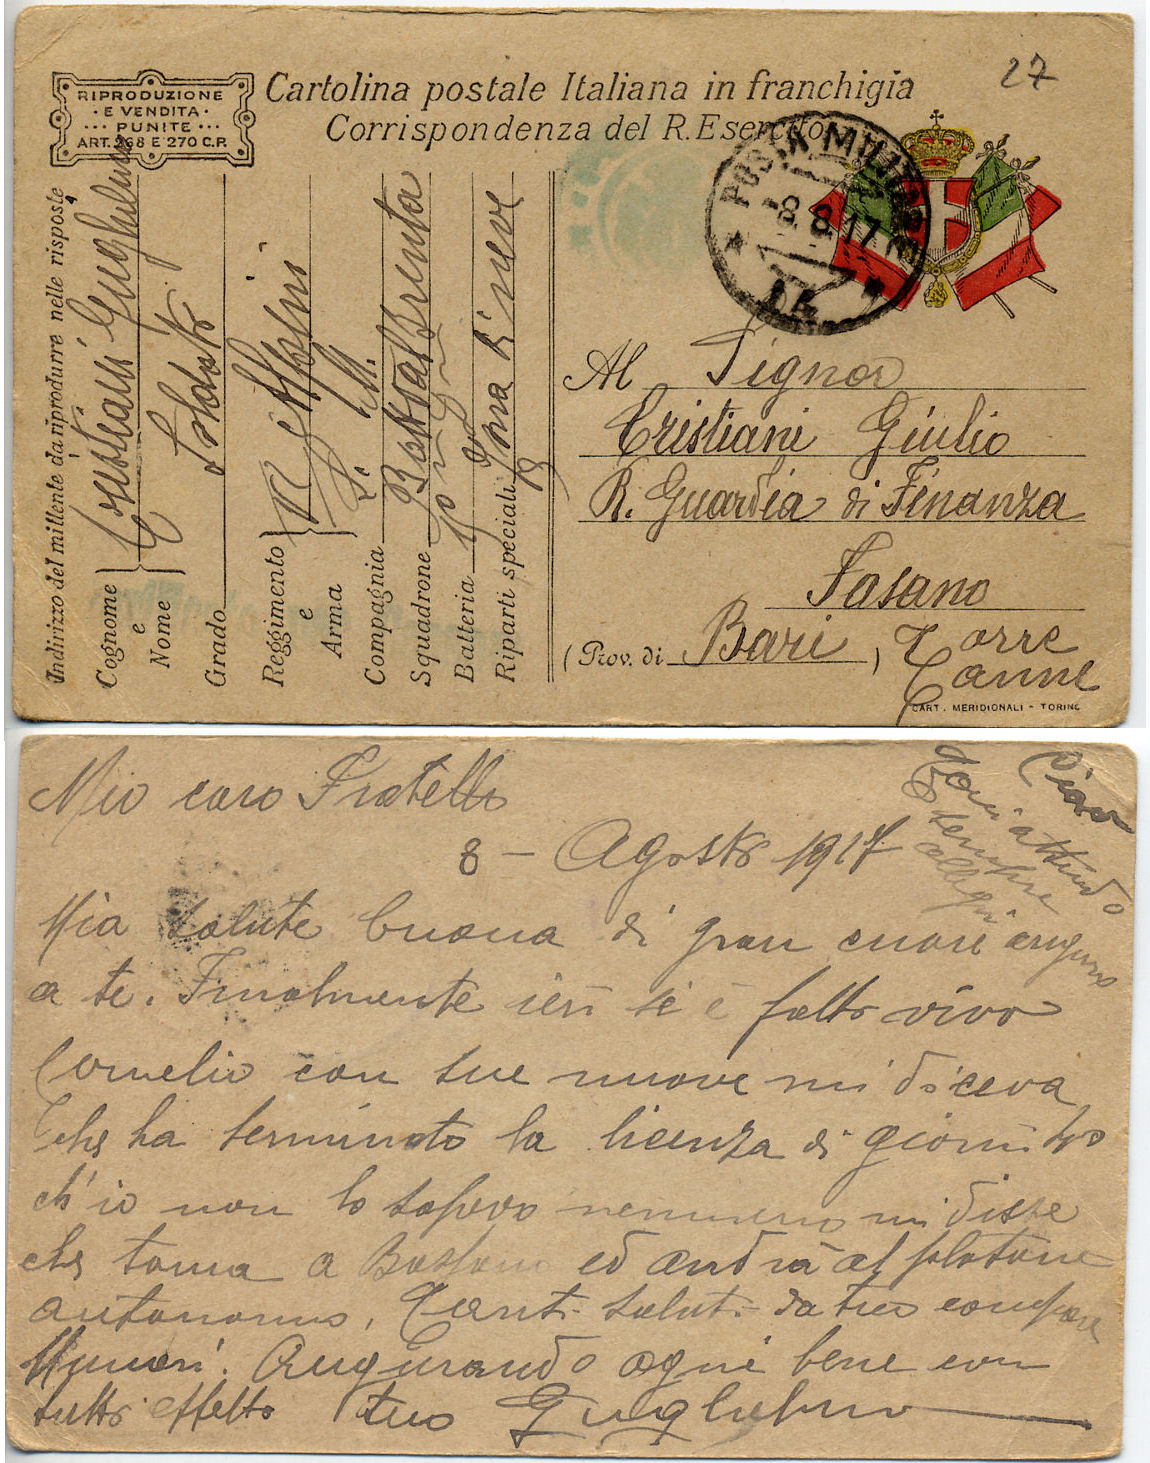 RIPRODUZIONE
E VENDITA
PUNITE
ART. 268 E 270 C.P.
Cartolina postale Italiana in franchigia
Corrispondenza del R. Esercito
27
POSTA MILITARE
8.8.17
Indirizzo del mittente da riprodurre nelle risposte
Cognome e Nome Cristiani Guglielmo
Grado Soldato
Reggimento e Arma R Alpini
Compagnia
Squadrone Batt Val Brenta
Batteria
Riparti speciali
Al Signor
Cristiani Giulio
R. Guardia di Finanza
Fasano
(Prov. di Bari) Torre
Canne
CART. MERIDIONALI - TORINO
Mio caro Fratello
8 - Agosto 1917
Ciao
sempre
Mia salute buona di gran cuore auguro
a te. Finalmente ieri si è fatto vivo
Cornelio con sue nuove mi diceva
che ha terminato la licenza di giorni
ch'io non lo sapevo nemmeno mi disse
che torna a ed andrà al plotone
autonomo. Tanti saluti da tuo compare
Augurando ogni bene con
tutto affetto tuo Guglielmo